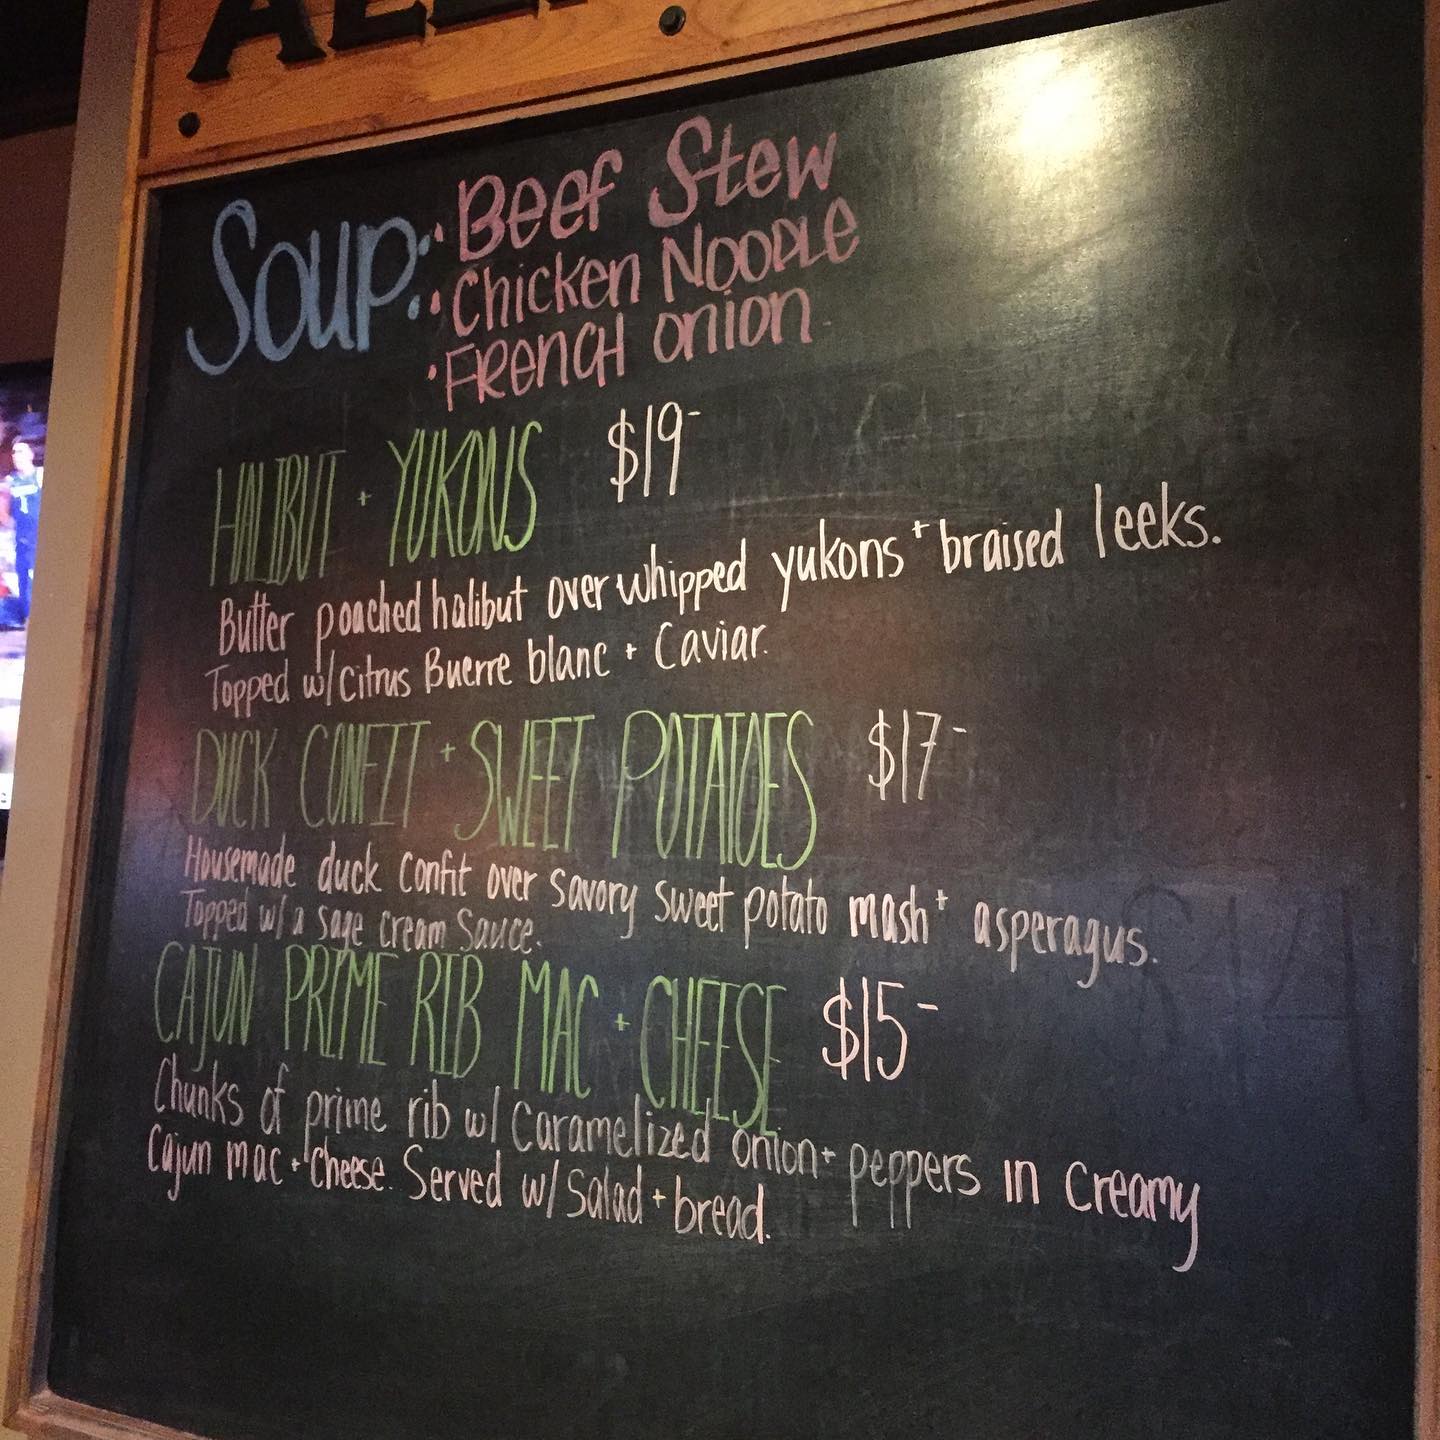 Soup: · Beef Stew
· Chicken Noodle
· French onion
HALIBUT + YUKONS $19-
Butter poached halibut over whipped yukons + braised leeks.
Topped w/ Citrus Buerre blanc + Caviar.
DUCK CONFIT + SWEET POTATOES $17-
Housemade duck confit over savory sweet potato mash + asperagus.
Topped w/ a sage cream Sauce.
CAJUN PRIME RIB MAC + CHEESE $15-
Chunks of prime rib w/ Caramelized onion + peppers in Creamy
Cajun mac + Cheese. Served w/ Salad + bread.